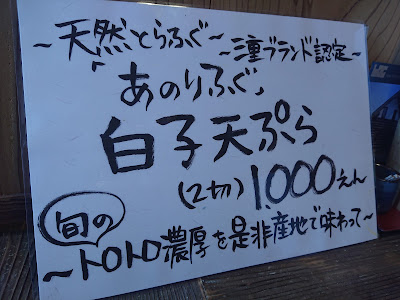 ～天然とらふぐ～
～三重ブランド認定～
「あのりふぐ」
白子天ぷら
(2切) 1000えん
旬の
～トロトロ濃厚を是非産地で味わって～